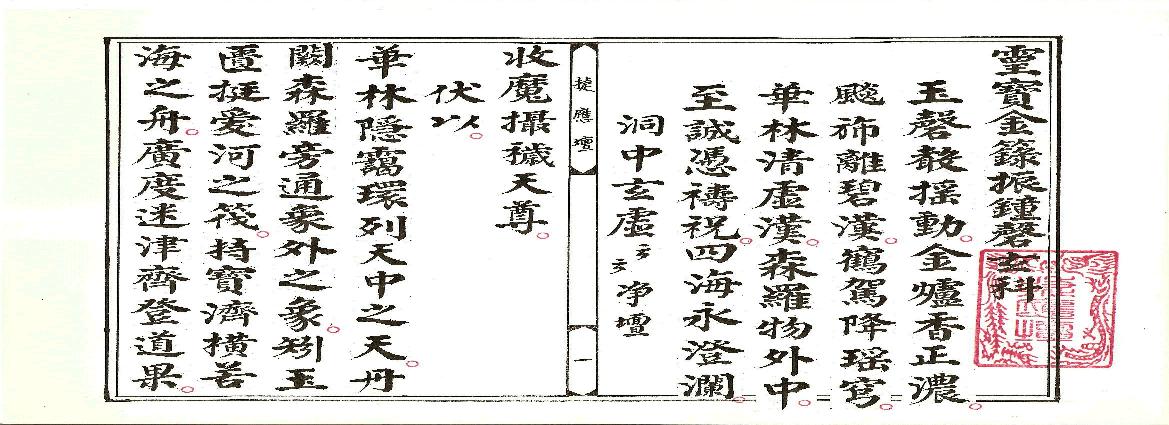 靈寶金籙振鐘磬玄科
玉磬散搖動。金爐香正濃。
飈斾離碧漢。鶴駕降瑶穹。
華林清虛漢。森羅物外中。
至誠憑禱祝。四海永澄瀾。
洞中玄虛 净壇
捷應壇
一
收魔攝穢天尊。
伏以。
華林隱靄環列天中之天。丹
闕森羅旁通象外之象。矧玉
匱挺愛河之筏。持寶濟橫苦
海之舟。廣度迷津齊登道果。